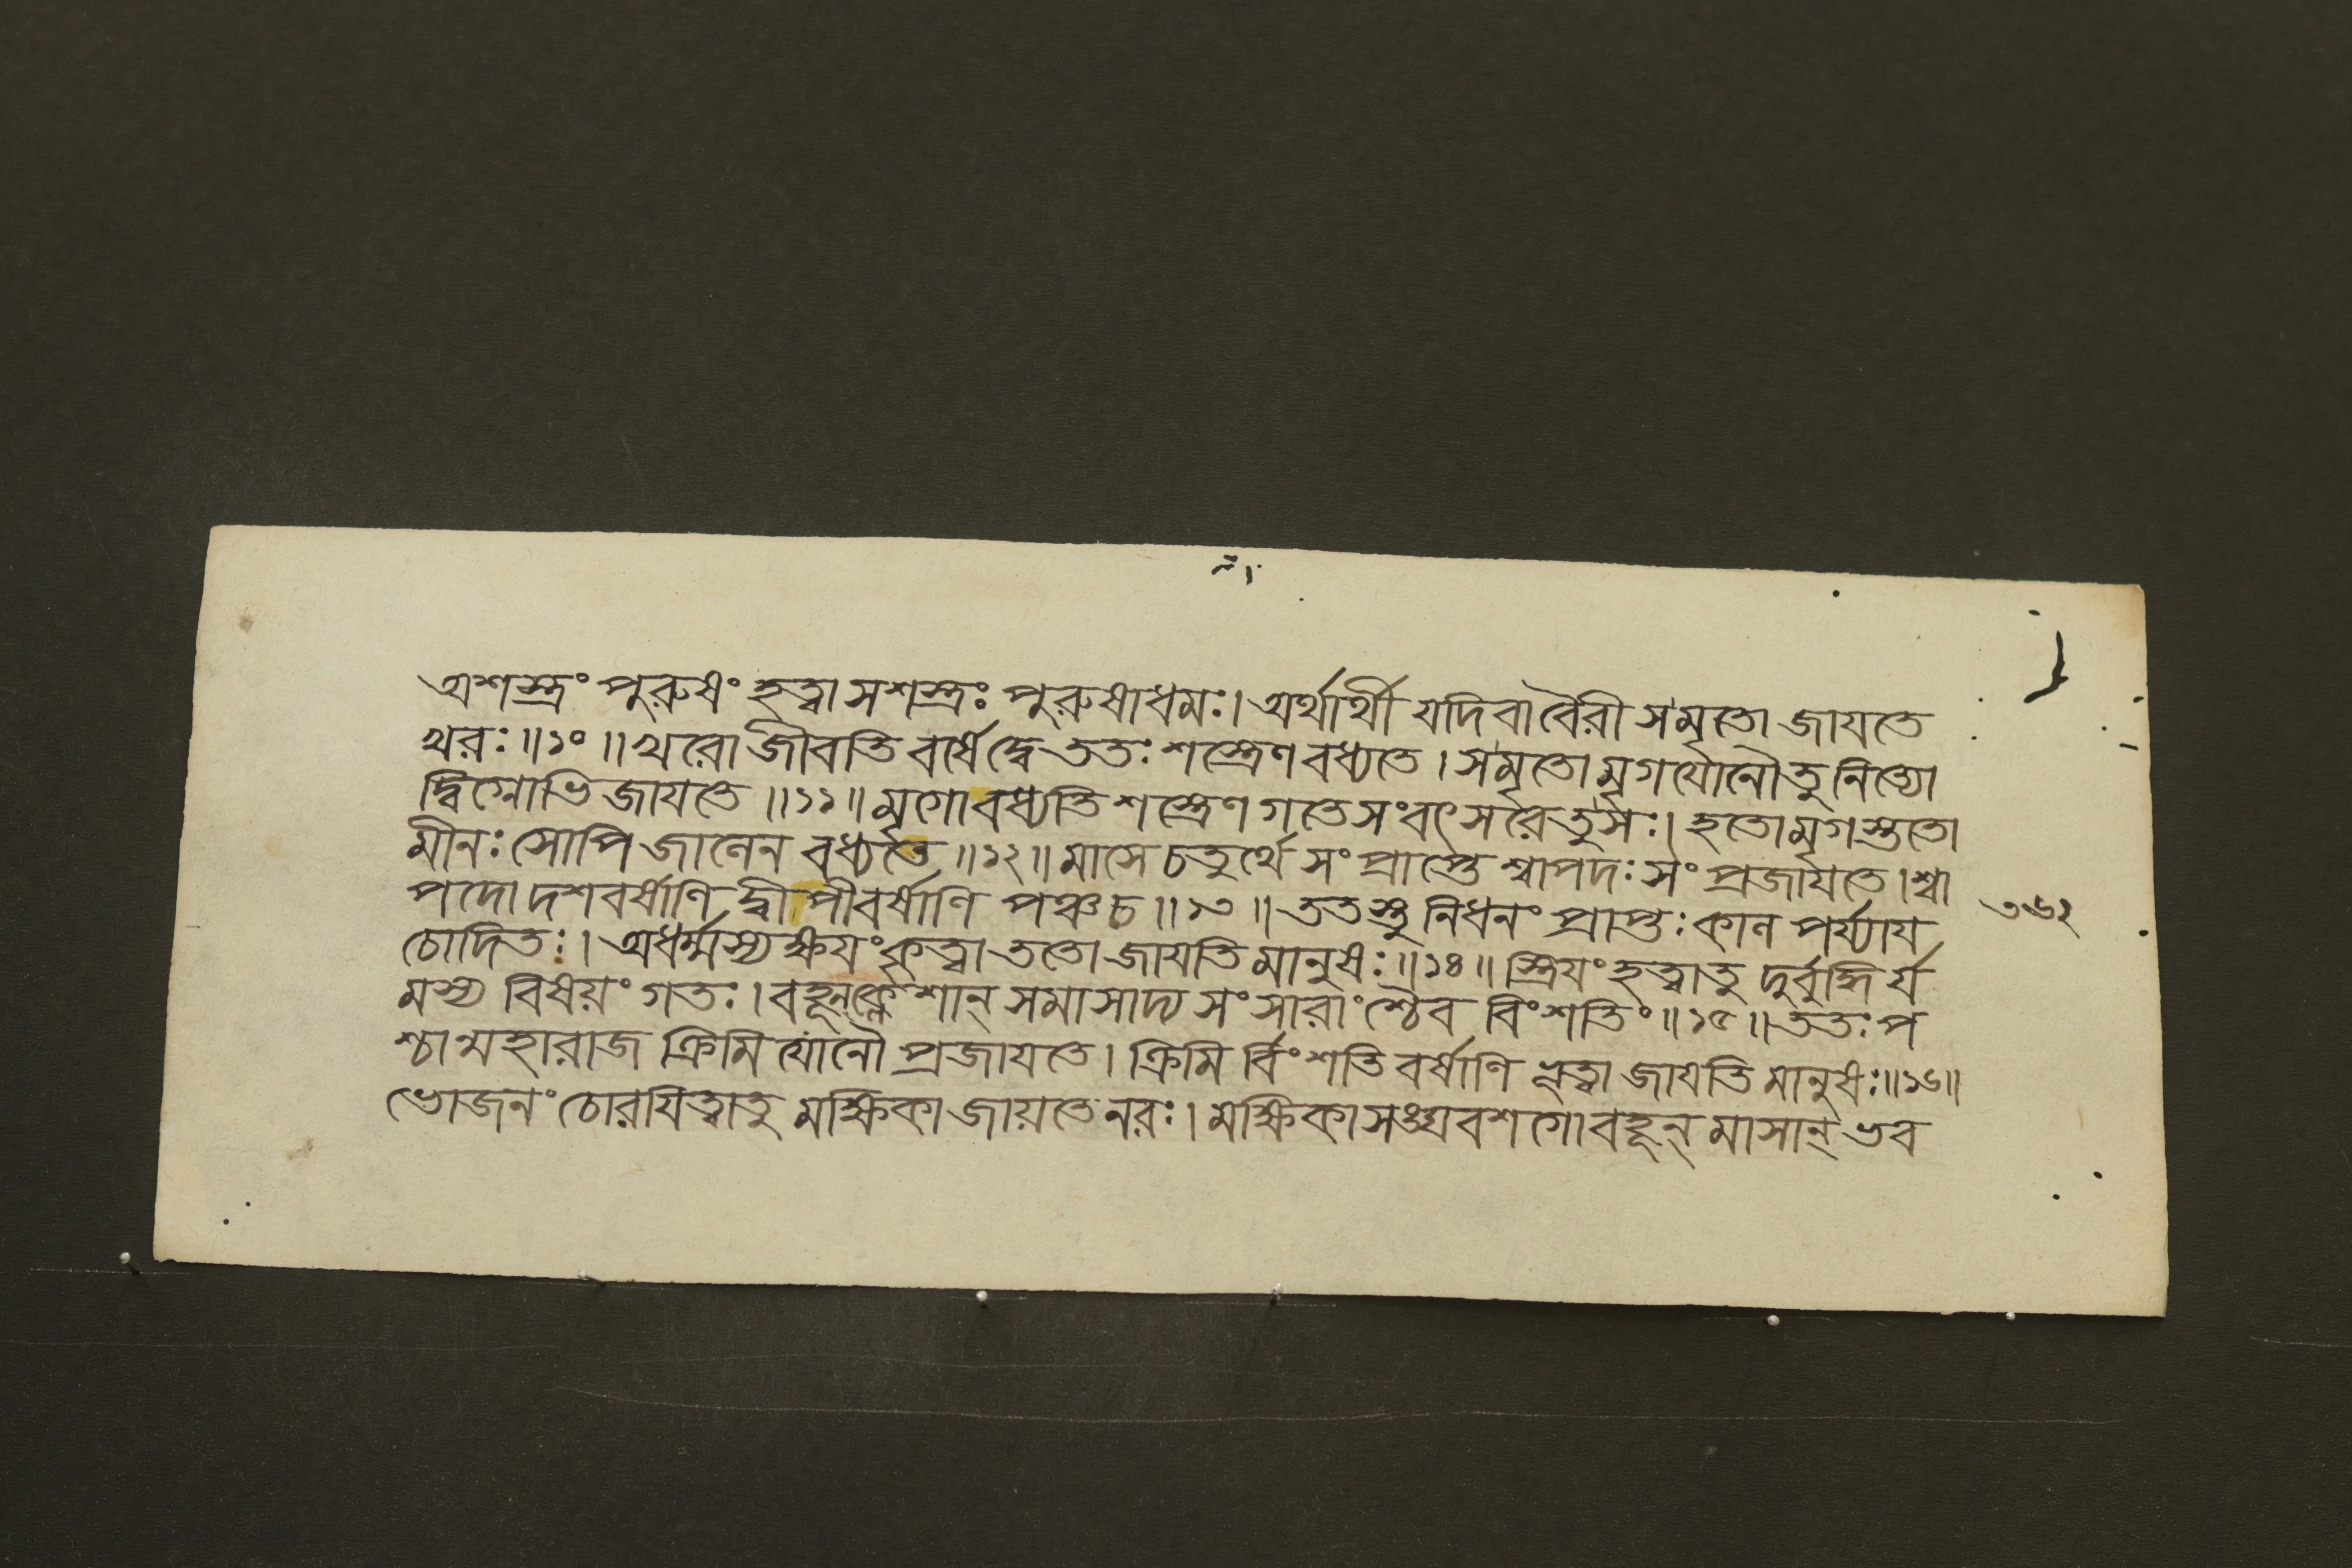 অশস্ত্রং পুরুষং হত্বা সশস্ত্রঃ পুরুষাধমঃ। অর্থার্থী যদিবাবৈরী সমৃতো জাযতে
খরঃ॥১০॥খরো জীবতি বর্ষেদ্বে ততঃ শস্ত্রেণবধ্যতে। সমৃতোমৃগর্যোনৌতু নিত্যো
দ্বিগ্নোভিজাযতে॥১১॥মৃগোবধ্যতিশস্ত্রেণ গতেসংবৎসরৈতুসঃ। হতোমৃগস্ততো
মীনঃ সোপি জালেন বধ্যতে॥১২॥মাসে চতুর্থে সংপ্রাপ্তে শ্বাপদঃ সংপ্রজাযতে। শ্বা
পদোদশবর্ষাণি দ্বীপীবর্ষাণি পঞ্চচ॥১৩॥ততস্তু নিধনং প্রাপ্তঃ কাল পর্য্যায
চোদিতঃ। অধর্ম্মস্যক্ষযংকৃত্বা ততো জাযতি মানুষঃ॥১৪॥স্ত্রিযংহত্বাতু দুর্বুদ্ধির্য
মস্য বিষয়ংগতঃ। বহূন্ক্লেশান্ সমাসাদ্য সংসারাংশ্চৈব বিংশতিং॥১৫॥ততঃ প
শ্চান্মহারাজ ক্রিমি যোনৌ প্রজাযতে। ক্রিমির্বিংশতিবর্ষাণি ভূত্বা জাযতি মানুষঃ॥১৬॥
ভোজনং চোরযিত্বাতু মক্ষিকা জায়তে নরঃ। মক্ষিকাসঙ্ঘবশগোবহূন্ মাসান্ ভব
৩৬২